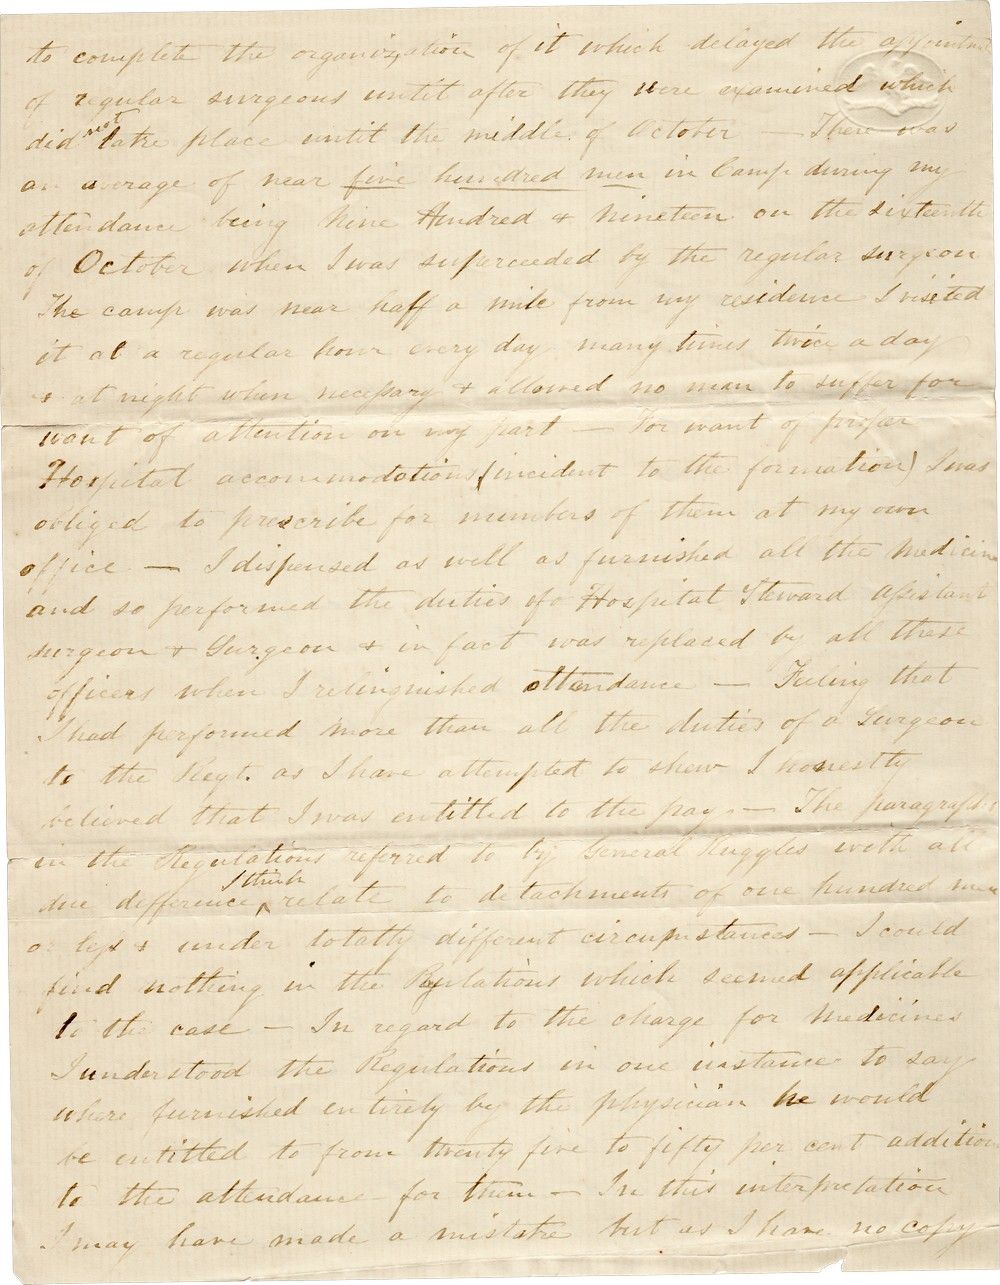 to complete the organization of it which delayed the appointmt
of regular surgeons until after they were examined which
did not take place until the middle of October — There was
an average of near five hundred men in Camp during my
attendance being Nine Hundred & Nineteen on the sixteenth
of October when I was superceeded by the regular surgeon
The camp was near half a mile from my residence I visited
it at a regular hour every day many times twice a day
& at night when necessary & allowed no man to suffer for
want of attention on my part — For want of proper
Hospital accommodations (incident to the formation) I was
obliged to prescribe for numbers of them at my own
office — I dispensed as well as furnished all the Medicine
and so performed the duties of a Hospital Steward Assistant
surgeon & Surgeon & in fact was replaced by all these
officers when I relinquished attendance — Feeling that
I had performed more than all the duties of a Surgeon
to the Regt. as I have attempted to shew I honestly
believed that I was entitled to the pay — The paragraph
in the Regulations referred to by General Ruggles with all
due difference I think relate to detachments of one hundred men
or less & under totally different circumstances — I could
find nothing in the Regulations which seemed applicable
to the case — In regard to the charge for Medicines
I understood the Regulations in one instance to say
where furnished entirely by the physician he would
be entitled to from twenty five to fifty per cent addition
to the attendance for them — In this interpretation
I may have made a mistake but as I have no copy